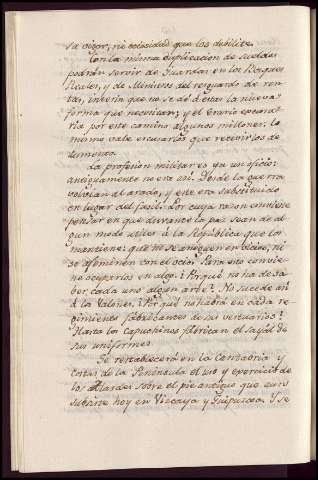 su vigor, ni ociosidad que los debilite.
Con la misma duplicacion de sueldos
podrán servir de Guardas en los Bosques
Reales, y de Ministros del resguardo de ren-
tas, interin que no se dé á estas la nueva
forma que necesitan; y el Erario economi-
zaria por este camino algunos millones: lo
mismo vale escusarlos que recivirlos de
aumento.
La profesion militar es ya un oficio:
antiguamente no era asi. Desde la guerra
volvian al arado, y este era substituido
en lugar del fusil. Por cuya razon conviene
pensar en que durante la paz sean de al-
gun modo utiles á la República que los
mantiene: que no se entreguen en vicios, ni
se afeminen con el ocio. Para esto convie-
ne ocuparlos en algo. ¿Por qué no ha de sa-
ber cada uno algun arte? ¿No sucede asi
á los Valones? ¿Por qué no habrá en cada re-
gimiento fabricantes de sus vestuarios?
Hasta los capuchinos fabrican el sayal de
sus uniformes.
Se restablecerá en la Cantabria y
costas de la Peninsula el uso y exercicio de
los Alardes sobre el pie antiguo que aun
subsiste hoy en Vizcaya y Guipuzcoa. Y se